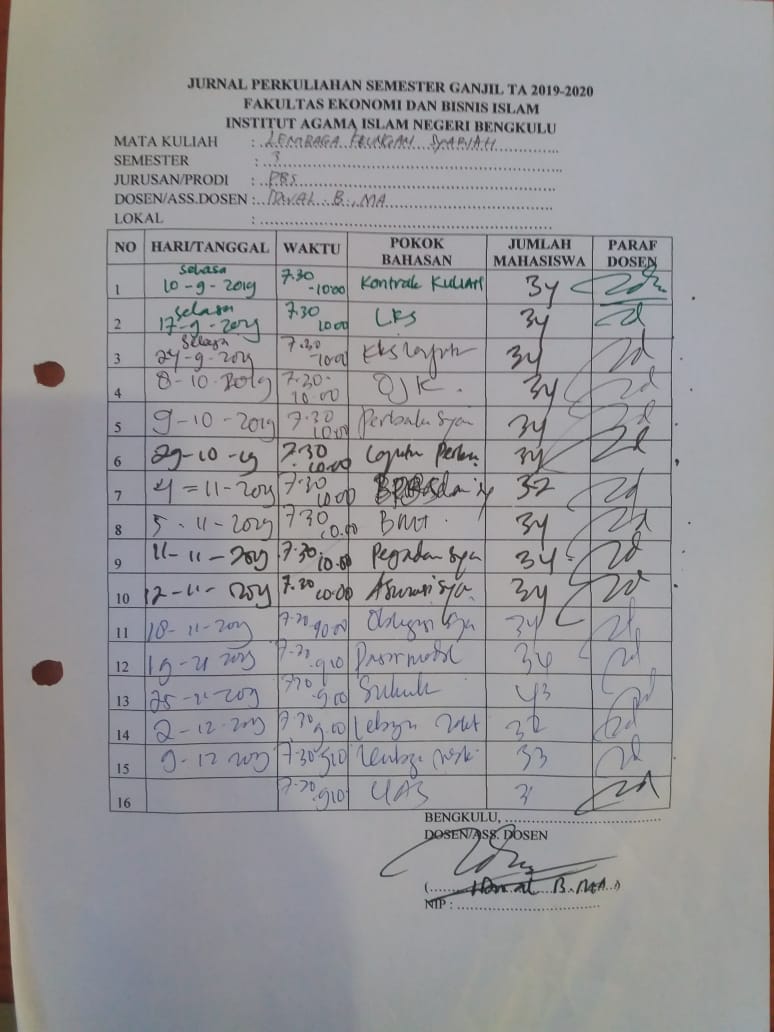 JURNAL PERKULIAHAN SEMESTER GANJIL TA 2019-2020
FAKULTAS EKONOMI DAN BISNIS ISLAM
INSTITUT AGAMA ISLAM NEGERI BENGKULU
MATA KULIAH : LEMBAGA KEUANGAN SYARIAH
SEMESTER : 3
JURUSAN/PRODI : PBS
DOSEN/ASS.DOSEN : IDWAL B., MA
LOKAL :
NO HARI/TANGGAL WAKTU POKOK BAHASAN JUMLAH MAHASISWA PARAF DOSEN
1 Selasa 10-9-2019 7.30-10.00 Kontrak Kuliah 34
2 Selasa 17-9-2019 7.30 10.00 LKS 34
3 Selasa 24-9-2019 7.30-10.00 34
4 8-10-2019 7.30-10.00 OJK. 34
5 9-10-2019 7.30 10.00 34
6 29-10-19 7.30-10.00 34
7 4-11-2019 7.30 10.00 32
8 5-11-2019 7.30 10.00 BMT. 34
9 11-11-2019 7.30-10.00 Pegadan Sya 34
10 12-11-2019 7.30 10.00 Asuransi Sya 34
11 18-11-2019 7.30 34
12 7.30 Pasar modal 34
13 7.30 Sukuk
14 2-12-2019 7.30 9.00
15 9-12 2019 7.30 33
16 7.30 UAS
BENGKULU,
DOSEN/ASS. DOSEN
(Idwal B. MA)
NIP :